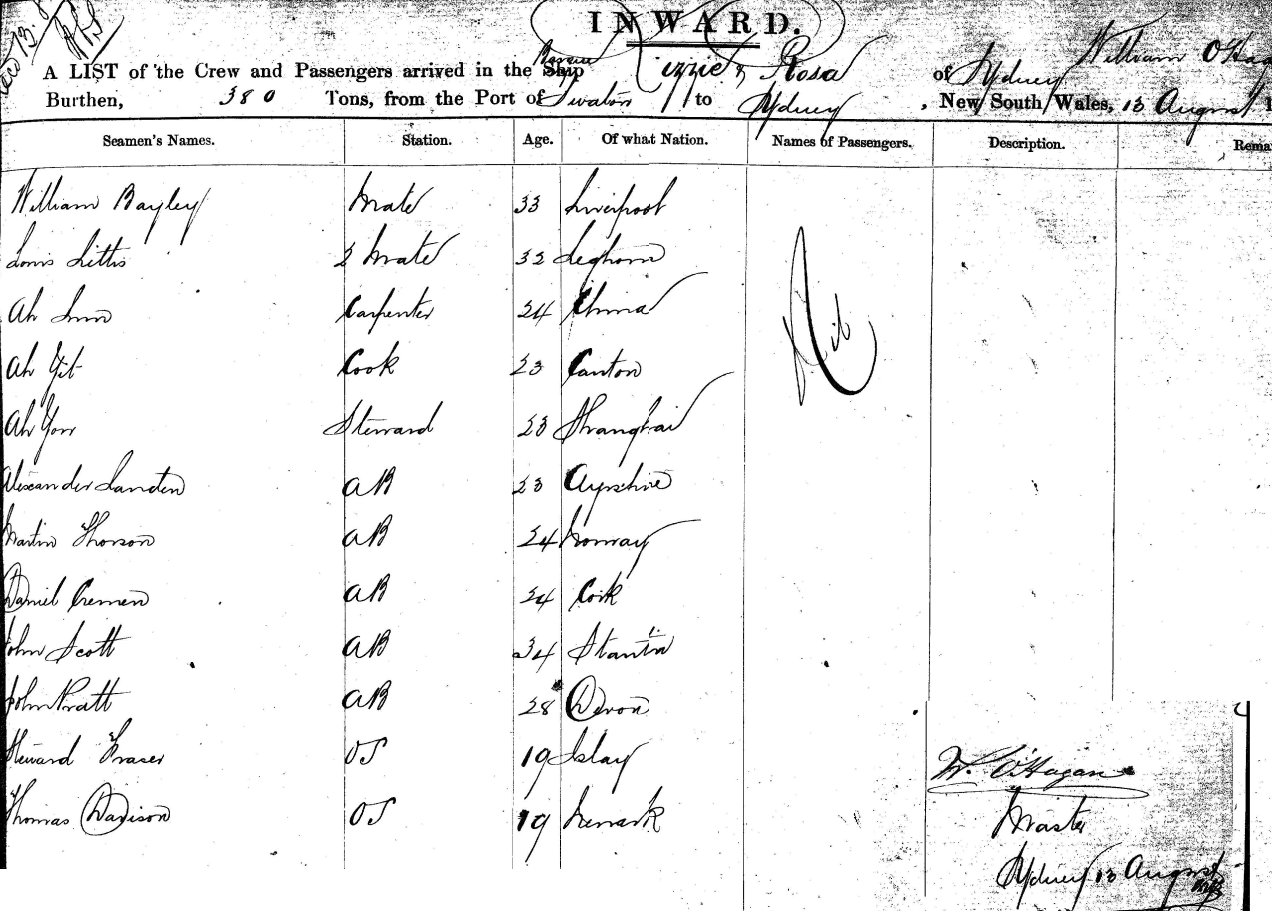 INWARD.
A LIST of the Crew and Passengers arrived in the Ship Lizzie & Rosa of Sydney William O'Hag
Burthen, 380 Tons, from the Port of to Sydney, New South Wales, 13 August 1
Seamen's Names. Station. Age. Of what Nation. Names of Passengers. Description. Rema
William Bayley Mate 33 Liverpool
Louis Littis 2 Mate 32 Leghorn
Ah Carpenter 24 China
Ah Yit Cook 23 Canton
Nil
Ah Yow Steward 23 Shanghai
Alexander 23 AB Ayrshire
Martin Thorson AB 24 Norway
Daniel Cremen AB 24 Cork
John Scott AB 34
John Pratt AB 28 Devon
Steward Fraser OS 19 Islay
Thomas Davison OS 19 Newark
W. O'Hagan
Master
Sydney 13 August